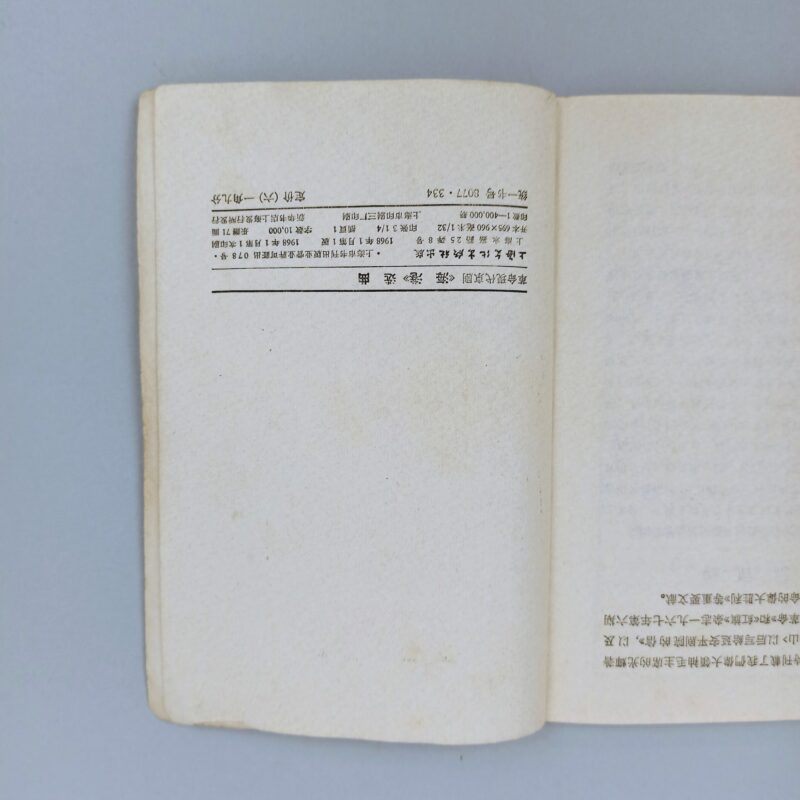 刊載了我們偉大領袖毛主席的光輝著
山》以后写給延安平剧院的信》，以及
革命》和《紅旗》杂志一九六七年第六期
命的偉大胜利》等重要文献。
革命現代京剧《海 港》选曲
上海文化出版社出版
上海永福路 25 弄 8 号
·上海市书刊出版业营业許可証出 078 号·
1968 年 1 月第 1 版 1968 年 1 月第 1 次印刷
开本 695×960 毫米 1/32 印张 3 1/4 插頁 1 字数 10,000 乐譜 71 面
印数 1—400,000 册
上海市印刷三厂印刷 新华书店上海发行所发行
統一书号 8077·334 定价（六）一角九分